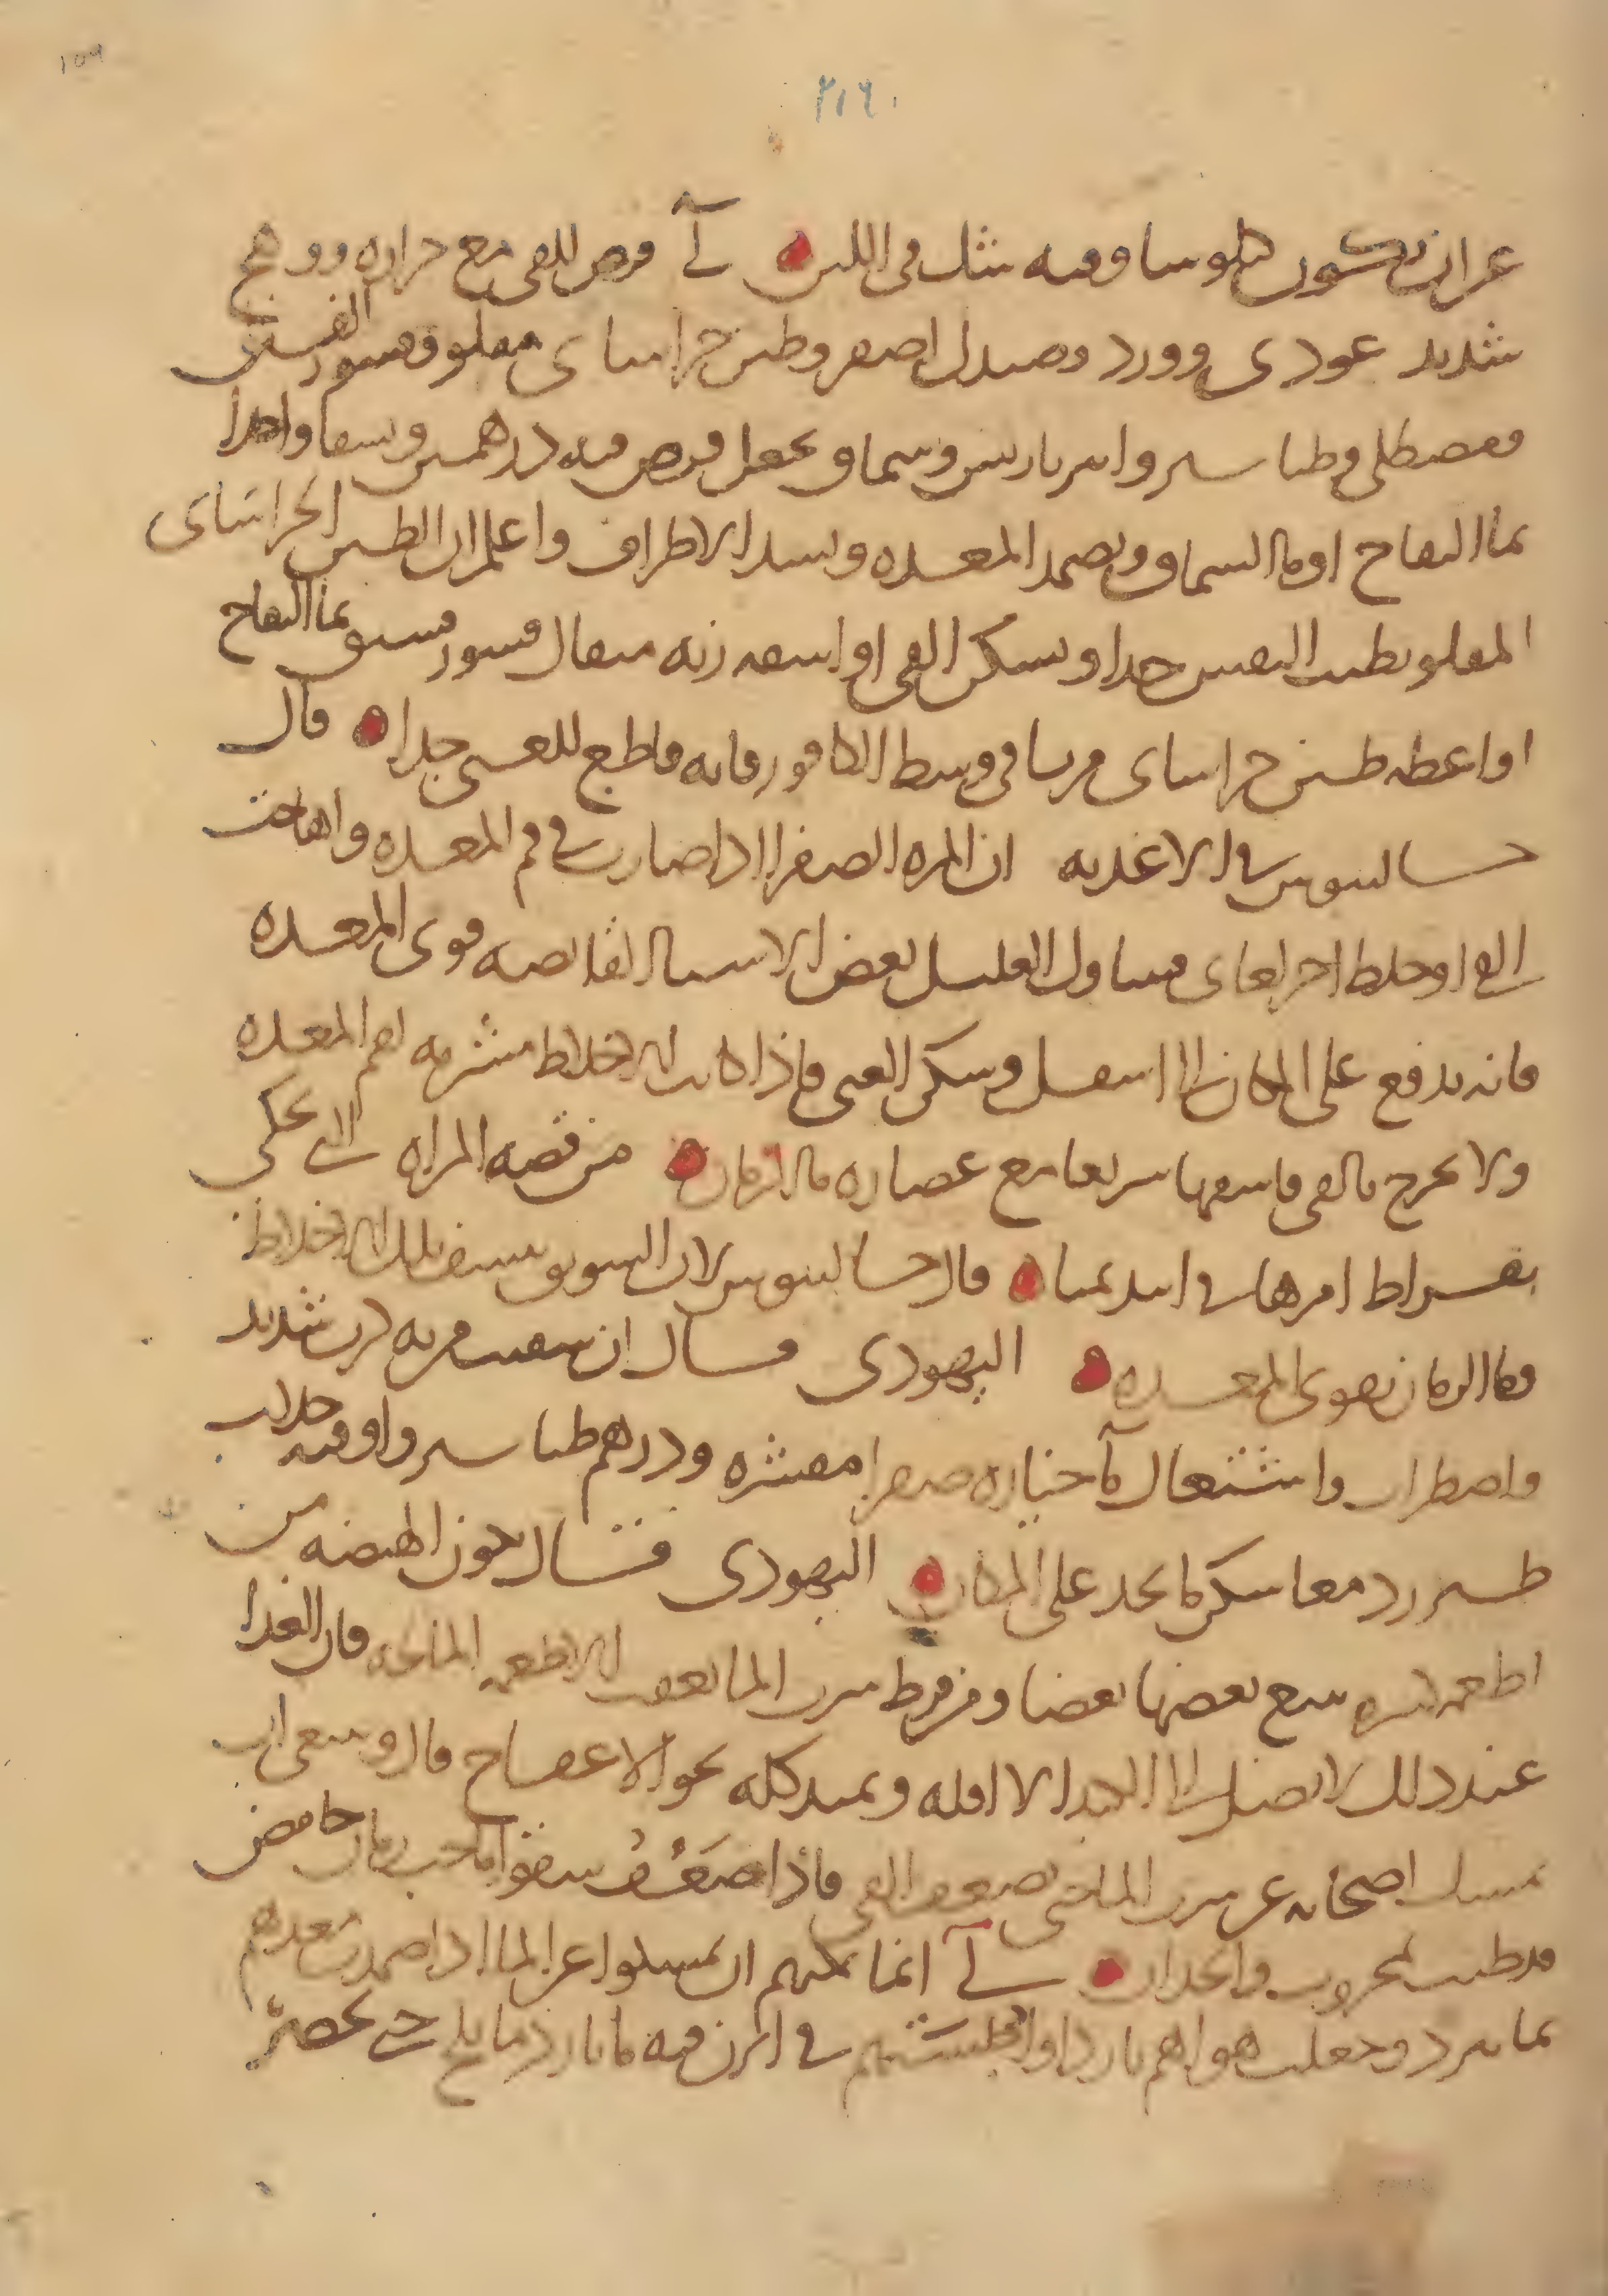 ١٥٩
٢١٦
غير ان يكون كلوسا وفيه مثل في اللبن لي قرص للقى مع حرارة ووهج
شديد عودى وورد وصندل اصفر وطين خراسانى مقلو وقشور الفستق
ومصطكى وطباشير وامبرباريس وسماق يجعل قرص فيه درهمين ويسقا واحدا
بما التفاح او ما السماق ويضمد المعدة ويشد الاطراف واعلم ان الطين الخراسانى
المقلو يطيب النفس جدا ويسكن القى او اسقه زنه مثقال قشور فستق بما التفاح
او اعطه طين خراسانى مربا في وسط الكافور فانه قاطع للغثى جدا قال
جالينوس في الاغذيه ان المره الصفرا اذا صارت في فم المعده واهاجت
القى او خلط اخر لعابى فتناول العليل بعض الاشيا القابضه قوى المعده
فانه يدفع على المكان الى اسفل وسكن الغثى فاذا كانت الاخلاط متشربه لفم المعده
ولا يخرج بالقى فاسقها سريعا مع عصارة ما الرمان من قصه المراه التي يحكى
بقراط امرها في ابيديميا قال جالينوس لان السويق ينشف تلك الاخلاط
وما الرمان يقوى المعده اليهودى قال ان سقيت من به كرب شديد
واضطراب واشتعال ما خياره صفرا مقشره ودرهم طباشير واوقيه جلاب
طبرزد معا سكن ما يجد على المكان اليهودى قال تكون الهيضه من
اطعمه كثيره يتبع بعضها بعضا ومن فرط شرب الما بعقب الاطعمه المالحه قال الغذا
عند ذلك لا يصل الى الكبد الا اقله ويميد كله نحو الاعفاج قال وينبغى ان
يمسك اصحابه عن شرب الما حتى يضعف القى فاذا ضعف سقوا ما حب رمان حامض
قد طيب بخروب وانجدان لي انما يمكنهم ان يمسكوا عن الما اذا ضمدت معدهم
بما يبرد وجعلت هواهم باردا واجلستهم في ابزن فيه ما بارد ما بلح حتى يخصر